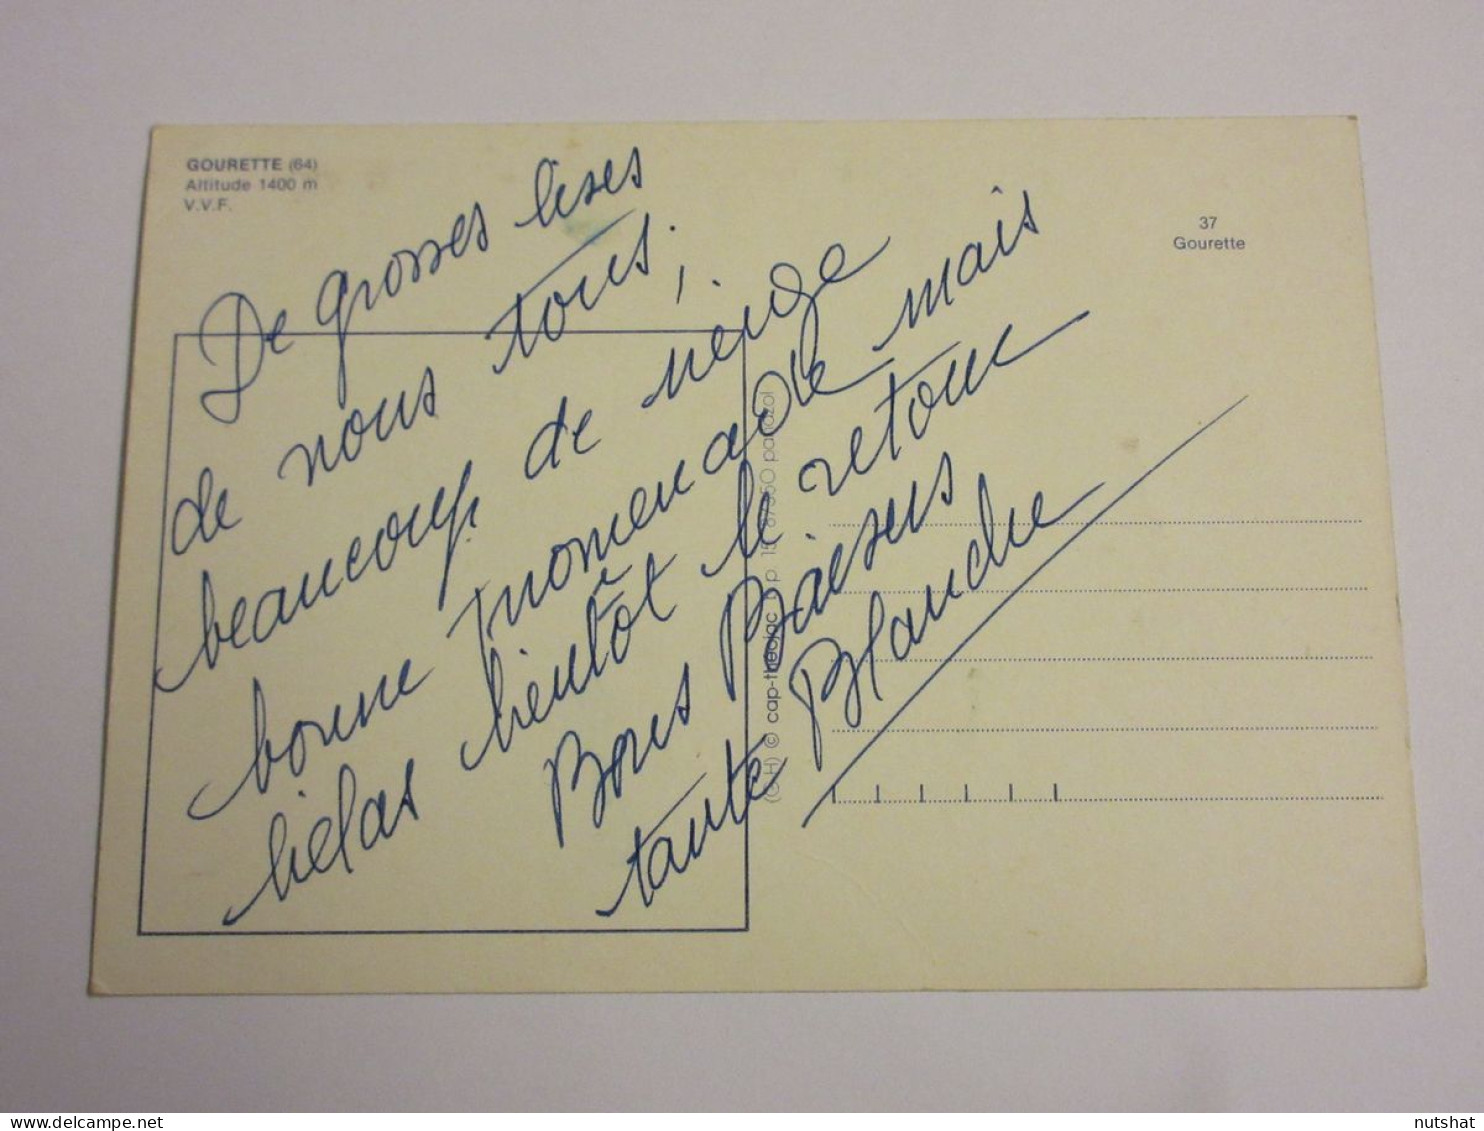 GOURETTE (64)
Altitude 1400 m
V.V.F.
37
Gourette
De grosses bises
de nous tous,
beaucoup de neige
bonne promenade mais
hélas bientôt le retour
Bons Baisers
tante Blanche
(G.H) © cap-théojac b.p. 15, 87350 panazol
delcampe.net
nutshat